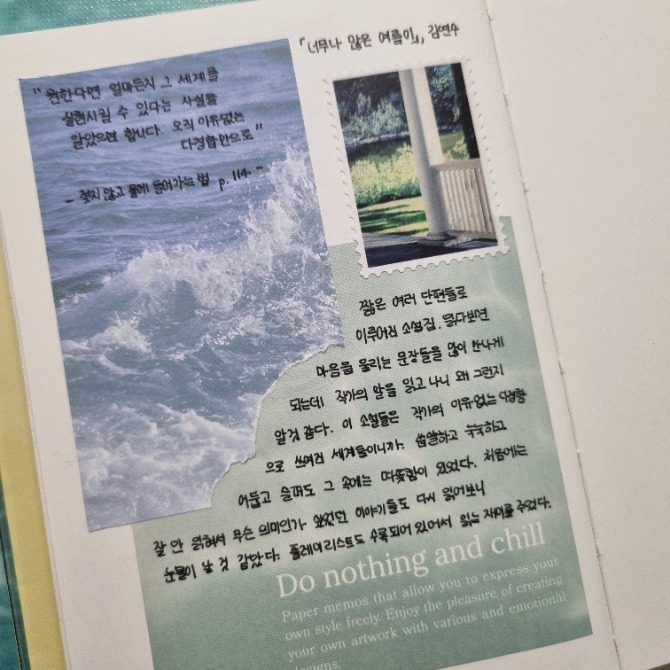 『너무나 많은 여름이』, 김연수
"원한다면 얼마든지 그 세계를
실현시킬 수 있다는 사실을
알았으면 합니다. 오직 이유없는
다정함만으로"
- 젖지 않고 물에 들어가는 법 p.114 -
짧은 여러 단편들로
이루어진 소설집. 읽다보면
마음을 울리는 문장들을 많이 만나게
되는데 작가의 말을 읽고 나니 왜 그런지
알것 같다. 이 소설들은 작가의 이유없는 다정함
으로 쓰여진 세계들이니까. 씁쓸하고 축축하고
어둡고 슬퍼도 그 속에는 따뜻함이 있었다. 처음에는
잘 안 읽혀서 무슨 의미인가 했었던 이야기들도 다시 읽어보니
눈물이 날 것 같았다. 플레이리스트도 수록되어 있어서 읽는 재미를 주었다.
Do nothing and chill
Paper memos that allow you to express your
own style freely. Enjoy the pleasure of creating
your own artwork with various and emotional
designs.